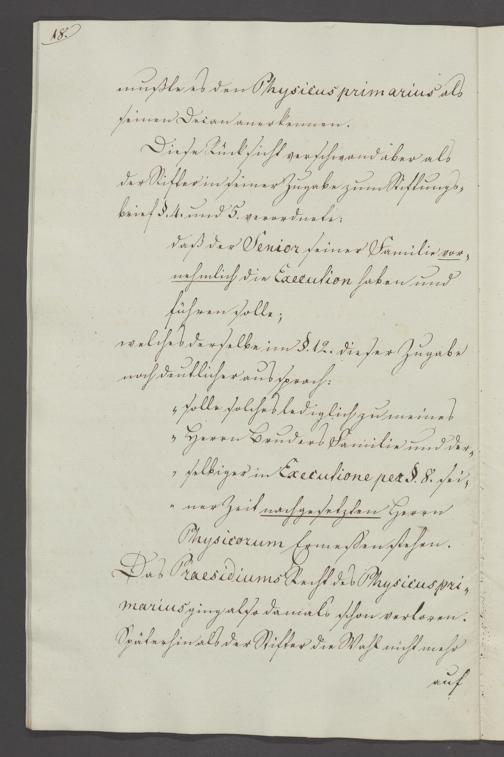 18.
mußte es den Physicus primarius als
seinen Decan anerkennen.
Diese Rücksicht verschwand aber als
der Stifter in seiner Zugabe zum Stiftungs-
brief §. 4. und 5. verordnete:
daß der Senior seiner Familie vor-
nehmlich die Execution haben und
führen solle;
welches derselbe im §. 12. dieser Zugabe
noch deutlicher aussprach:
" solle solches lediglich zu meines
" Herrn Bruders Familie und der-
" selbigen in Executione per §. 8. sei-
" ner Zeit nachgesetzten Herrn
Physicorum Ermessen stehen.
Das Praesidiums Recht des Physicus pri-
marius ging also damals schon verloren.
Späterhin als der Stifter die Wahl nicht mehr
auf